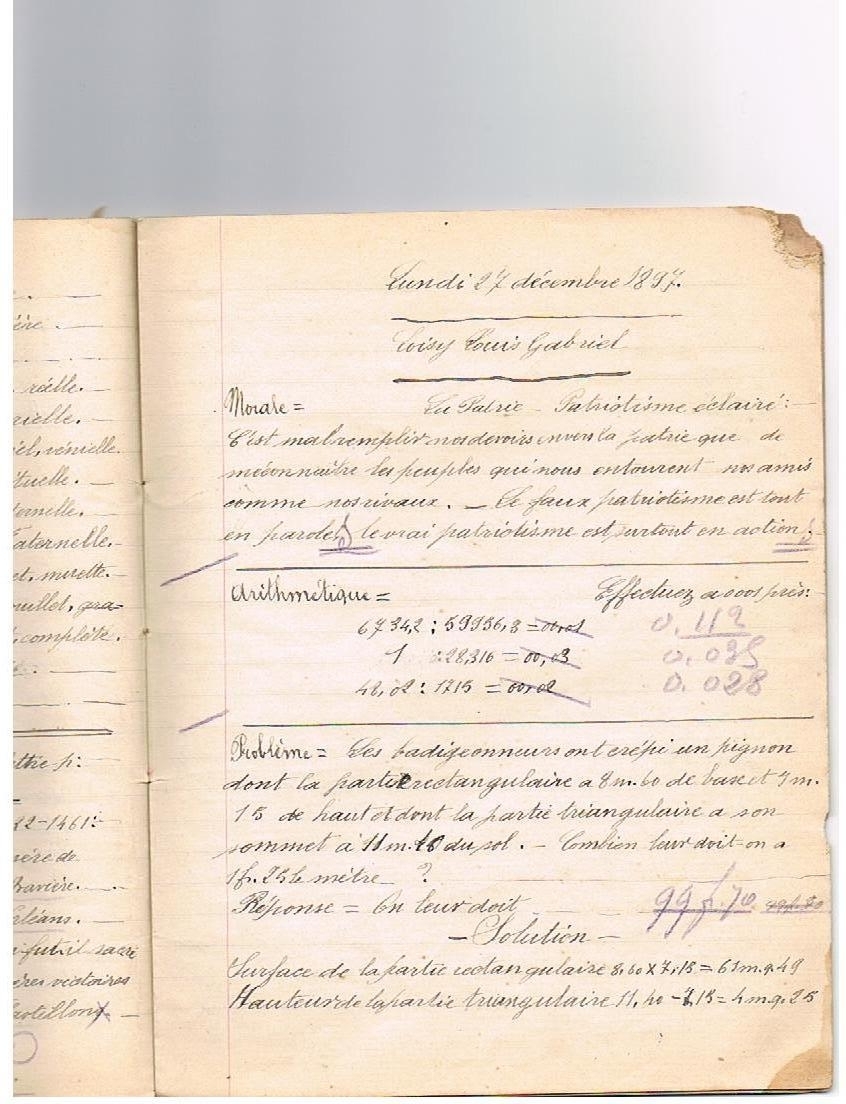 ère. —
réelle. —
rielle. —
iel, vénielle.
tuelle. —
ternelle.
aternelle. —
et, muette. —
ouillet, gra-
complète.
Lundi 27 décembre 1897.
Loisy Louis Gabriel
Morale = La Patrie — Patriotisme éclairé: —
C'est mal remplir nos devoirs envers la patrie que de
méconnaître les peuples qui nous entourent nos amis
comme nos rivaux. — Le faux patriotisme est tout
en paroles, le vrai patriotisme est surtout en action. —
Arithmétique = Effectuez a 0.001 près:
67342 : 59936,8 = 00,01 0.112
1 : 28,316 = 00,03 0.035
48,02 : 1715 = 00,02 0.028
Problème = Les badigeonneurs ont crépi un pignon
dont la partie rectangulaire a 8 m. 60 de base et 7 m.
15 de haut et dont la partie triangulaire a son
sommet à 11 m. 40 du sol. — Combien leur doit-on a
1 fr. 25 le mètre — ?
Réponse = On leur doit 99 f. 70
— Solution —
Surface de la partie rectangulaire 8,60 x 7,15 = 61 m. q. 49
Hauteur de la partie triangulaire 11,40 - 7,15 = 4 m. q. 25
ttre p:
12-1461: —
mère de
Bavière. —
rléans. —
fut-il sacré
ères victoires